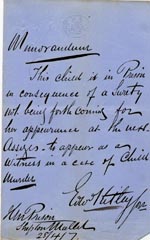 Memorandum
This child is in Prison
in consequence of a Surety
not being forthcoming for
her appearance at the next
Assizes. to appear as a
Witness in a case of Child
Murder
Gov
H M Prison
Shepton Mallet
25/4/7